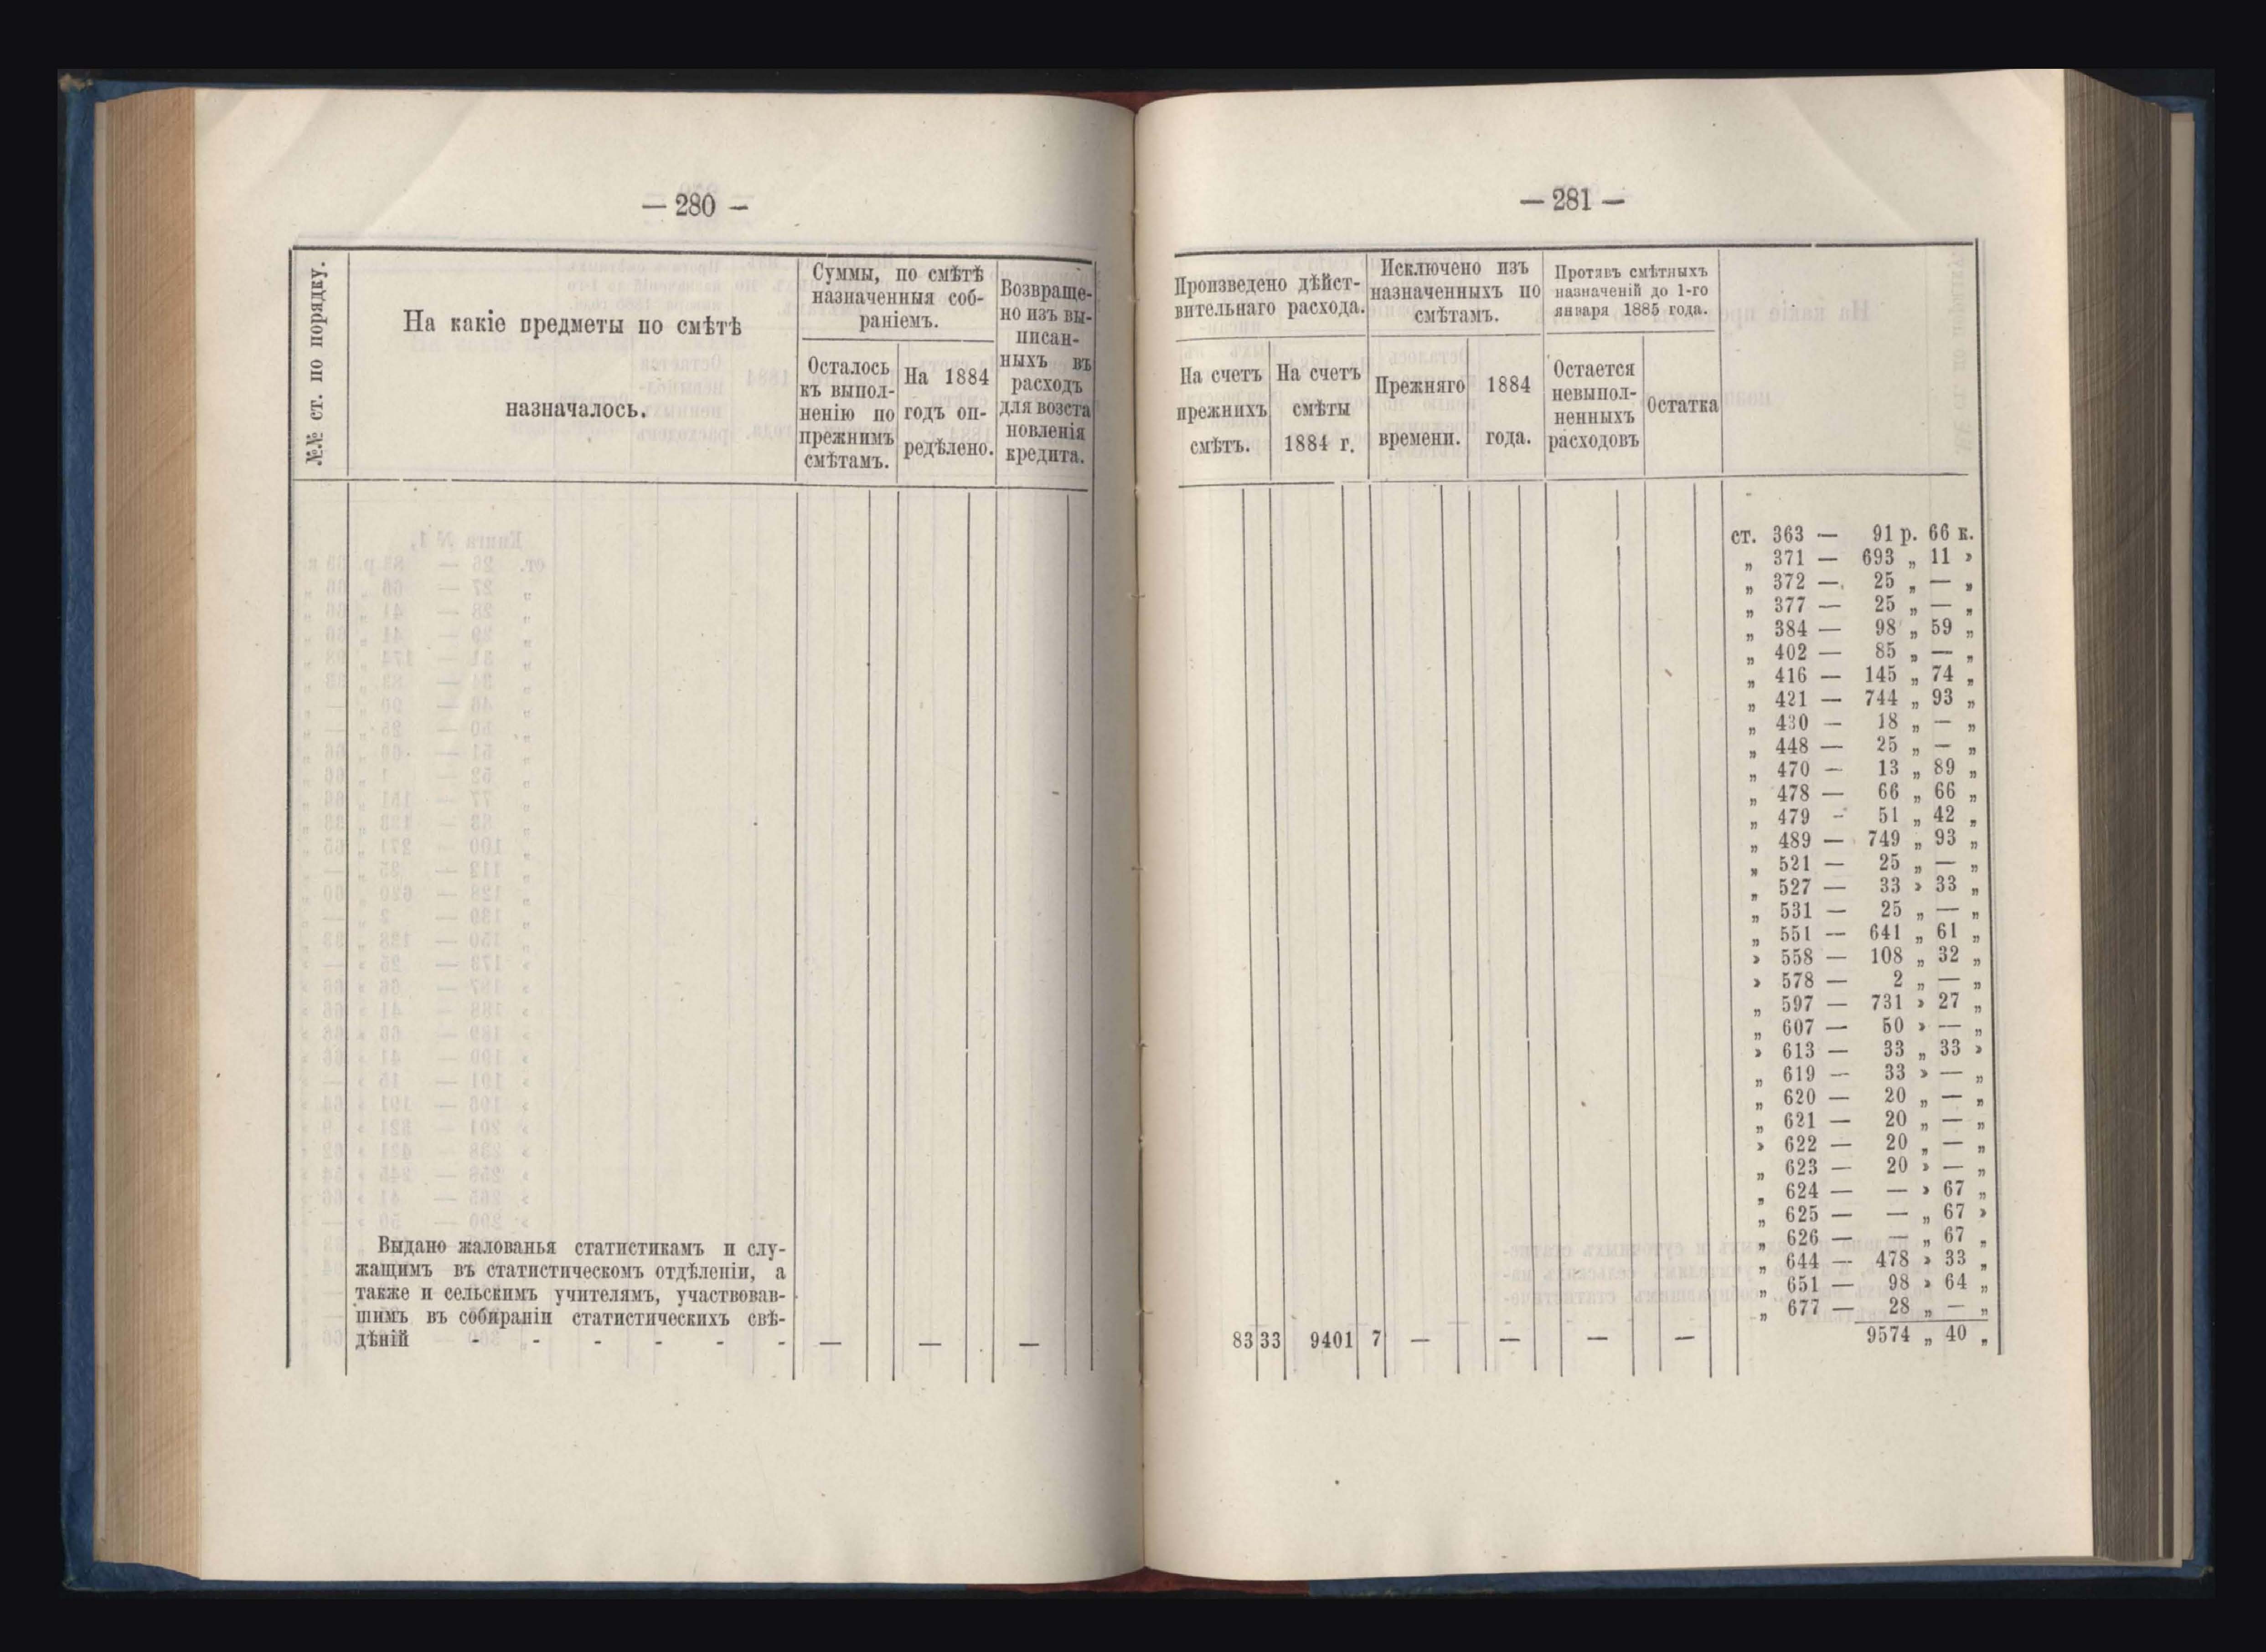 — 280 —
№№ ст. по порядку.
На какіе предметы по смѣтѣ
назначалось.
Суммы, по смѣтѣ
назначенныя соб-
раніемъ.
Осталось
къ выпол-
ненію по
прежнимъ
смѣтамъ.
На 1884
годъ оп-
редѣлено.
Возвраще-
но изъ вы-
писан-
ныхъ въ
расходъ
для возста
новленія
кредита.
Выдано жалованья статистикамъ и слу-
жащимъ въ статистическомъ отдѣленіи, а
также и сельскимъ учителямъ, участвовав-
шимъ въ собираніи статистическихъ свѣ-
дѣній - - - - - - — — —
— 281 —
Произведено дѣйст-
вительнаго расхода.
На счетъ
прежнихъ
смѣтъ.
На счетъ
смѣты
1884 г.
Исключено изъ
назначенныхъ по
смѣтамъ.
Прежняго
времени.
1884
года.
Противъ смѣтныхъ
назначеній до 1-го
января 1885 года.
Остается
невыпол-
ненныхъ
расходовъ
Остатка
ст. 363 — 91 р. 66 к.
„ 371 — 693 „ 11 »
„ 372 — 25 „ — „
„ 377 — 25 „ — „
„ 384 — 98 „ 59 „
„ 402 — 85 „ — „
„ 416 — 145 „ 74 „
„ 421 — 744 „ 93 „
„ 430 — 18 „ — „
„ 448 — 25 „ — „
„ 470 — 13 „ 89 „
„ 478 — 66 „ 66 „
„ 479 - 51 „ 42 „
„ 489 — 749 „ 93 „
„ 521 — 25 „ — „
„ 527 — 33 » 33 „
„ 531 — 25 „ — „
„ 551 — 641 „ 61 „
» 558 — 108 „ 32 „
» 578 — 2 „ — „
„ 597 — 731 » 27 „
„ 607 — 50 » — „
» 613 — 33 „ 33 »
„ 619 — 33 » — „
„ 620 — 20 „ — „
„ 621 — 20 „ — „
» 622 — 20 „ — „
„ 623 — 20 » — „
„ 624 — — » 67 „
„ 625 — — „ 67 »
„ 626 — — „ 67 „
„ 644 — 478 » 33 „
„ 651 — 98 » 64 „
„ 677 — 28 „ — „
83 33 9401 7 — — — — 9574 „ 40 „